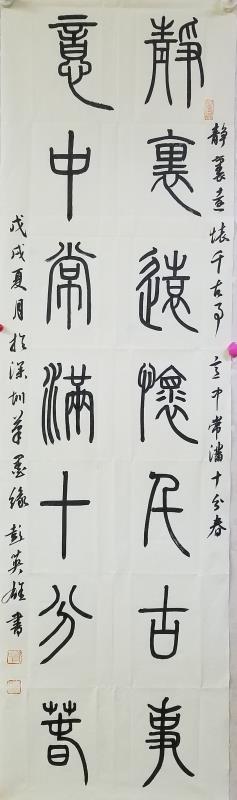 靜裏遠懷千古事
意中常滿十分春
靜裏遠懷千古事 意中常滿十分春
戊戌夏月於深圳筆墨緣彭英雄書